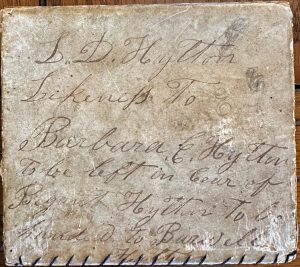 L. D. Hylton
Likeness To
Barbara. E. Hylton
To be left in Cour of
Bryant Hylton To b
hand d To Burwel